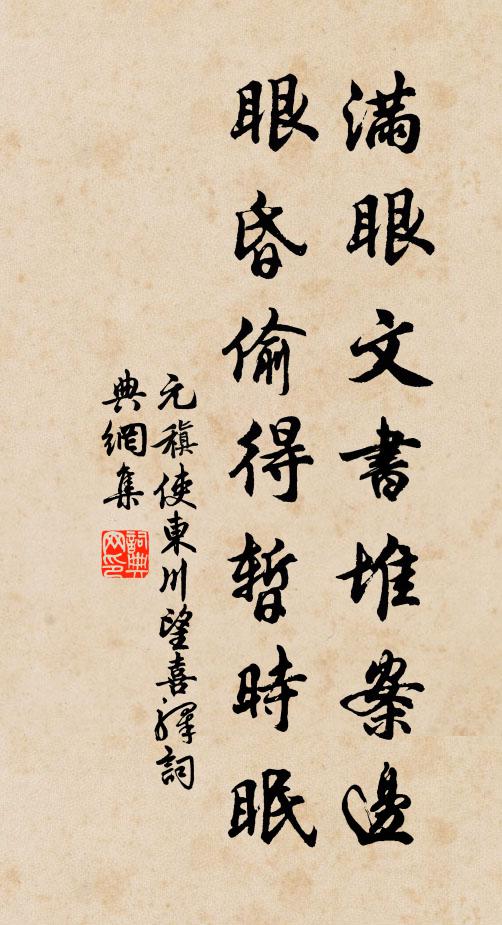 滿眼文書堆案邊
眼昏偷得暫時眠
元稹使東川望喜驛詞
典網集
詞典网印